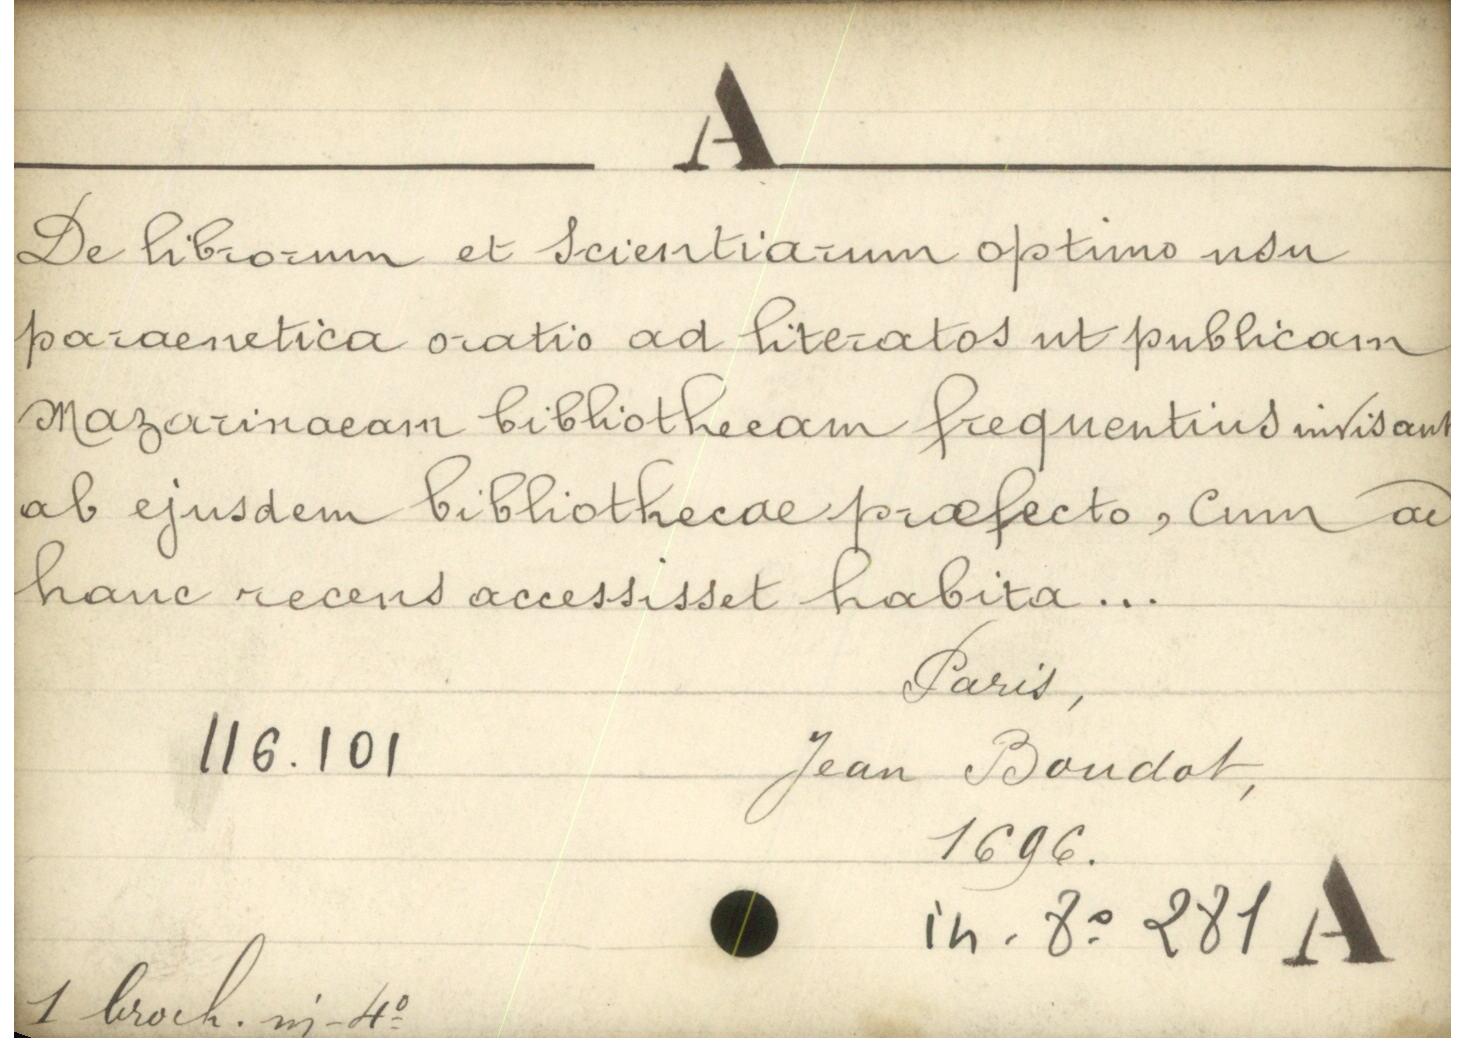 A
De librorum et scientiarum optimo usu
paraenetica oratio ad literatos ut publicam
Mazarinaeam bibliothecam frequentius invisant
ab ejusdem bibliothecae præfecto, cum ad
hanc recens accessisset habita...
Paris,
116.101 Jean Boudot,
1696.
in. 8º 281 A
1 broch. in-4º